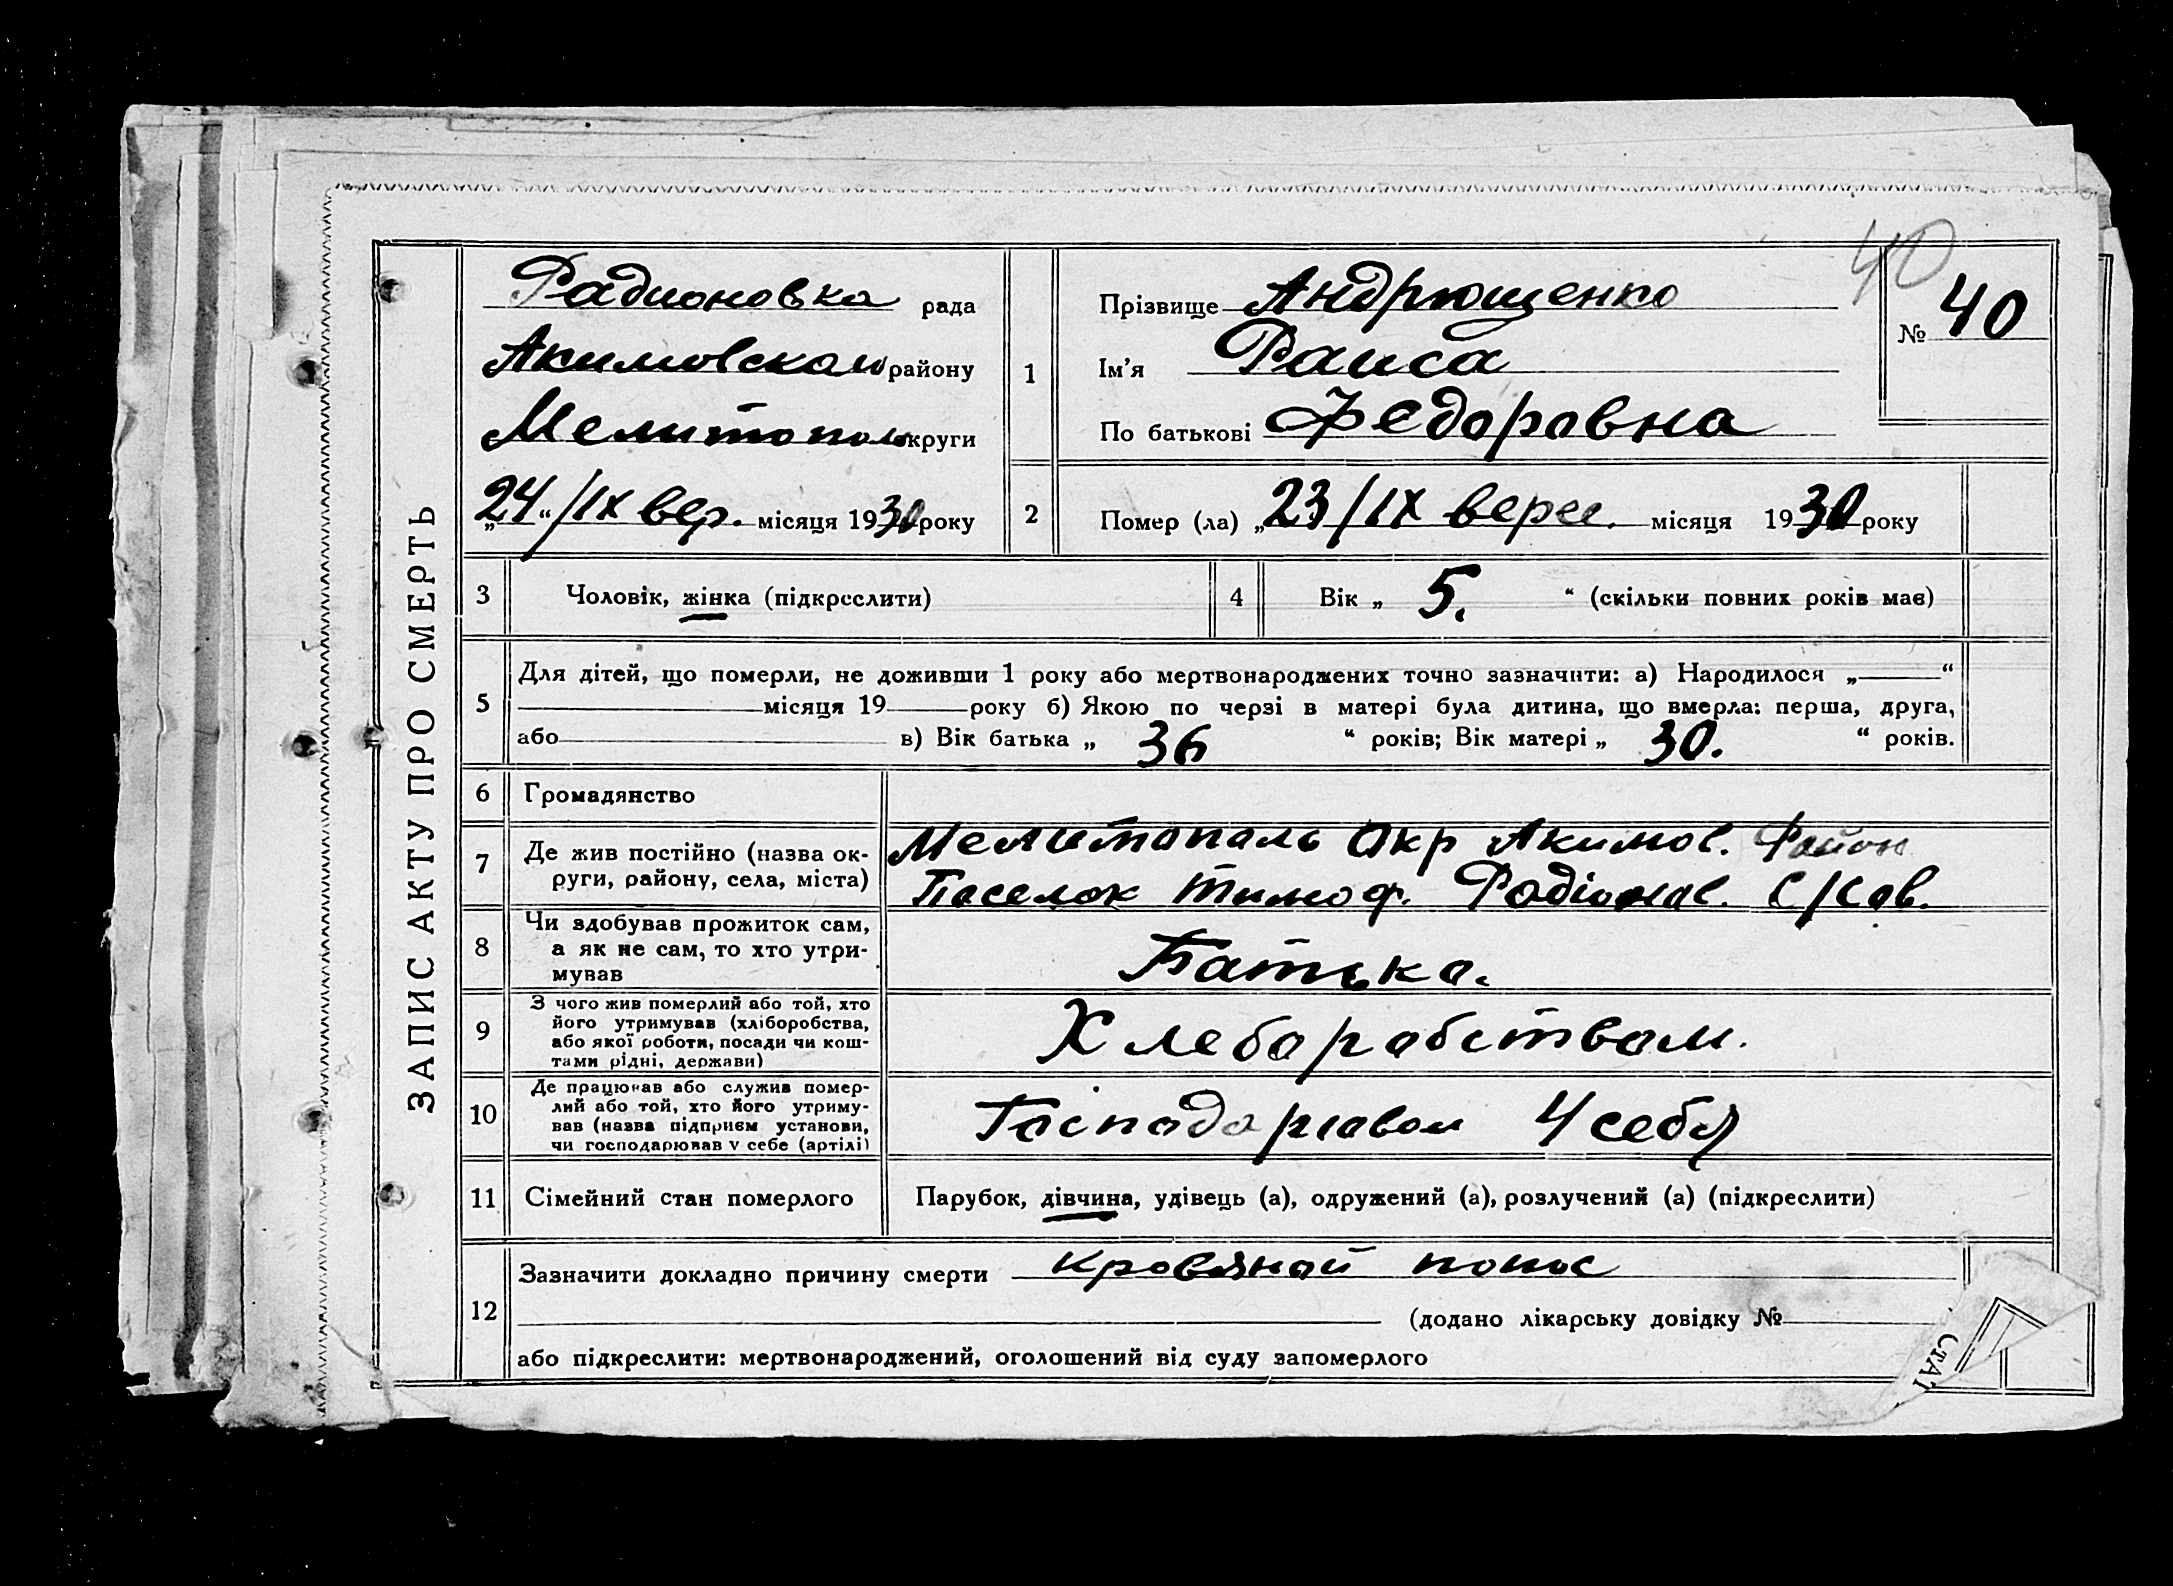 ЗАПИС АКТУ ПРО СМЕРТЬ
Радионовка рада
Акимовском району
Мелитопол округи
„24“/IX вер. місяця 1930 року
40
№ 40
1 Прізвище Андрющенко
Ім'я Раиса
По батькові Федоровна
2 Помер (ла) „23/IX верес. місяця 1930 року
3 Чоловік, жінка (підкреслити)
4 Вік „ 5. “ (скільки повних років має)
5 Для дітей, що померли, не доживши 1 року або мертвонароджених точно зазначити: а) Народилося „ “
місяця 19 року б) Якою по черзі в матері була дитина, що вмерла: перша, друга,
або в) Вік батька „ 36 “ років; Вік матері „ 30. “ років.
6 Громадянство
7 Де жив постійно (назва ок-
руги, району, села, міста)
Мелитопаль Окр Акимов. Район
Поселок Тимоф. Родіонов. С/Сов.
8 Чи здобував прожиток сам,
а як не сам, то хто утри-
мував
Батька.
9 З чого жив померлий або той, хто
його утримував (хліборобства,
або якої роботи, посади чи кош-
тами рідні, держави)
Хлеборобством.
10 Де працював або служив помер-
лий або той, хто його утриму-
вав (назва підприєм установи,
чи господарював у себе (артілі)
Господарювом У себя
11 Сімейний стан померлого
Парубок, дівчина, удівець (а), одружений (а), розлучений (а) (підкреслити)
12 Зазначити докладно причину смерти кровяной понос
(додано лікарську довідку №
або підкреслити: мертвонароджений, оголошений від суду запомерлого
СТАТ